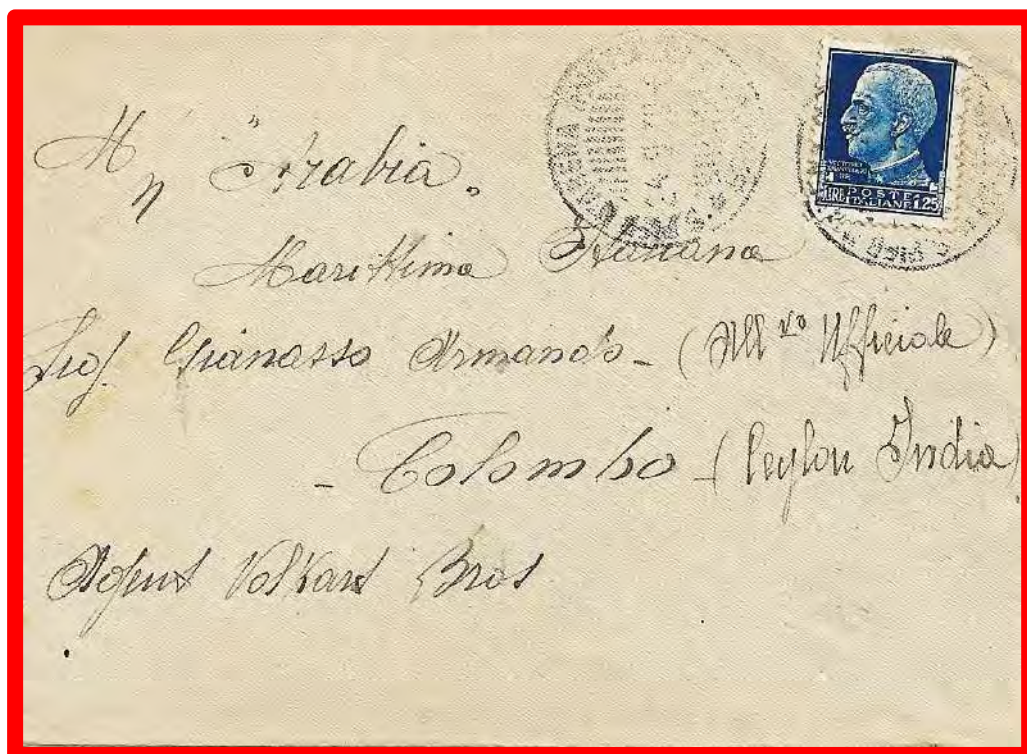 M/n "Arabia„
Marittima Italiana
Sig. Gianasso Armando - (All vo Ufficiale)
- Colombo - (Ceylon India)
Agent Volkart Bros
LIRE POSTE ITALIANE 1.25